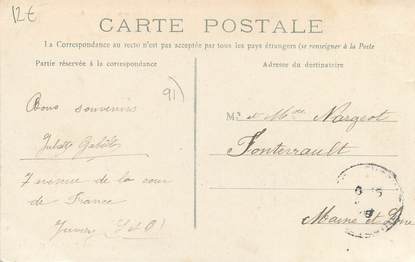 12€
CARTE POSTALE
La Correspondance au recto n'est pas acceptée par tous les pays étrangers (se renseigner à la Poste
Partie réservée à la correspondance
Adresse du destinataire
91)
Bons souvenirs
Juliette
7 avenue de la cour
de France
Juvisy S et O
Mr et Mme Nargeot
Fontevrault
Maine et Loire